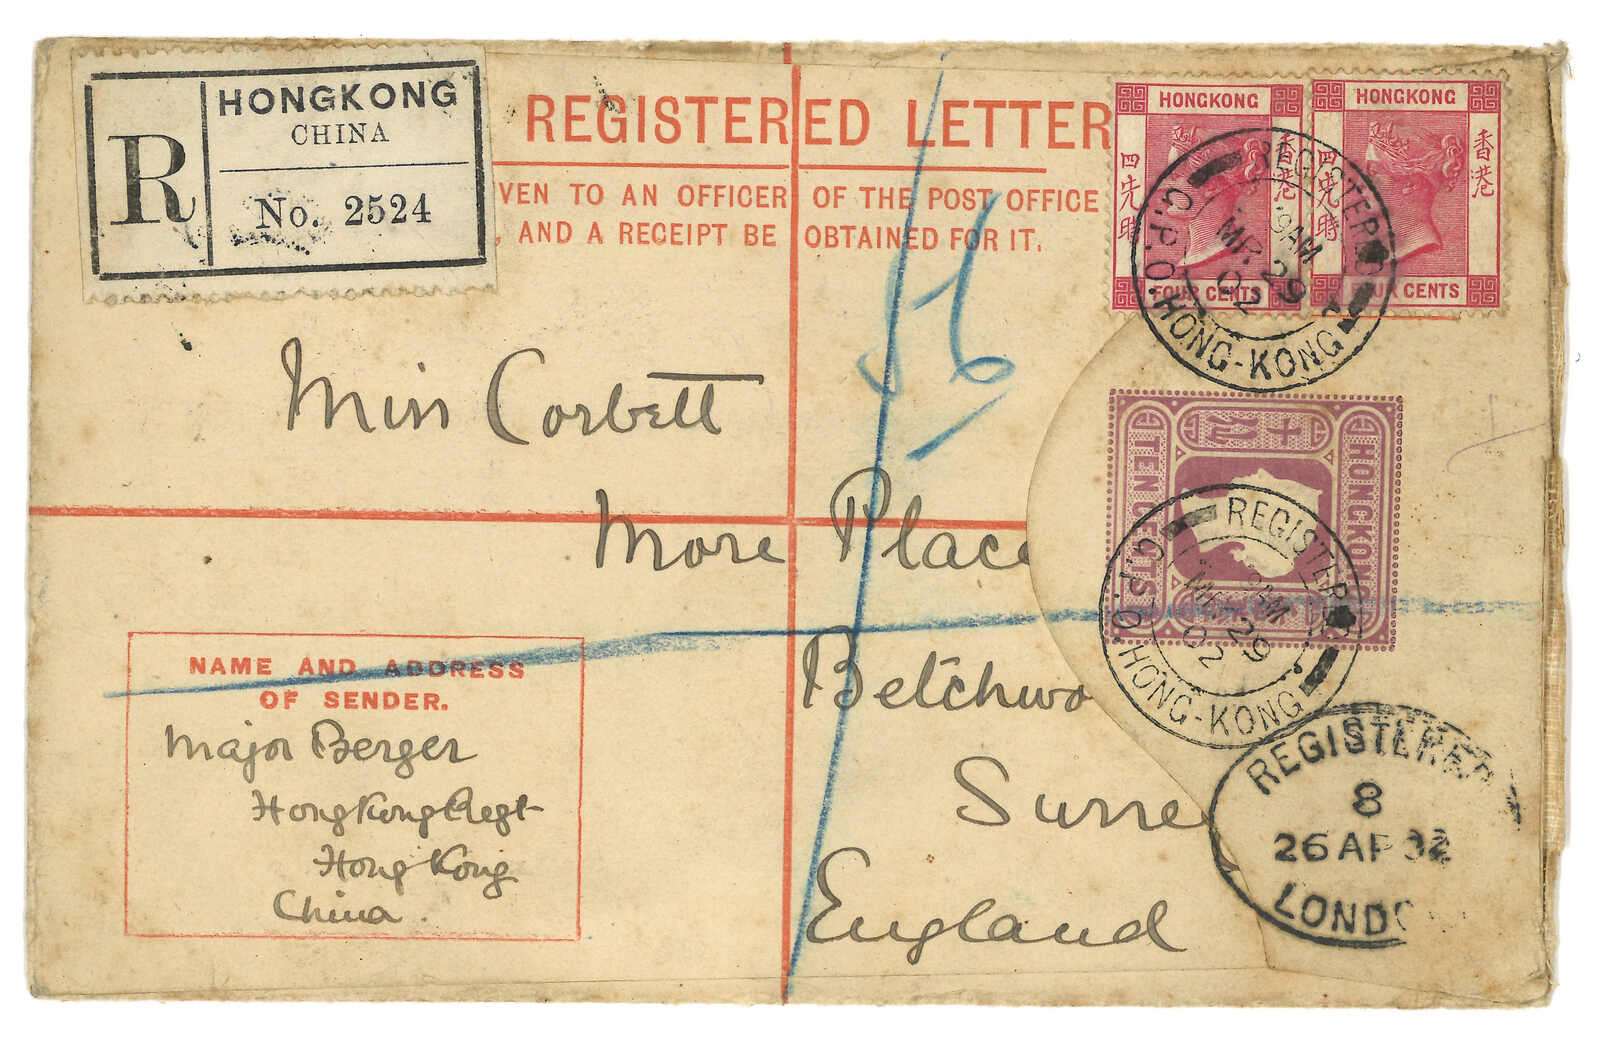 R
HONGKONG
CHINA
No. 2524
REGISTERED LETTER
VEN TO AN OFFICER OF THE POST OFFICE
, AND A RECEIPT BE OBTAINED FOR IT.
HONGKONG
香港
四先時
FOUR CENTS
HONGKONG
香港
四先時
FOUR CENTS
REGISTERED
G.P.O. HONG-KONG
9AM
MR 29
02
Miss Corbett
More Place
Betchwo
Surre
England
HONGKONG
TEN CENTS
REGISTERED
G.P.O. HONG-KONG
9AM
MR 29
02
NAME AND ADDRESS
OF SENDER.
Major Berger
HongKong Regt
Hong Kong
China.
REGISTERED
8
26 AP 02
LONDO